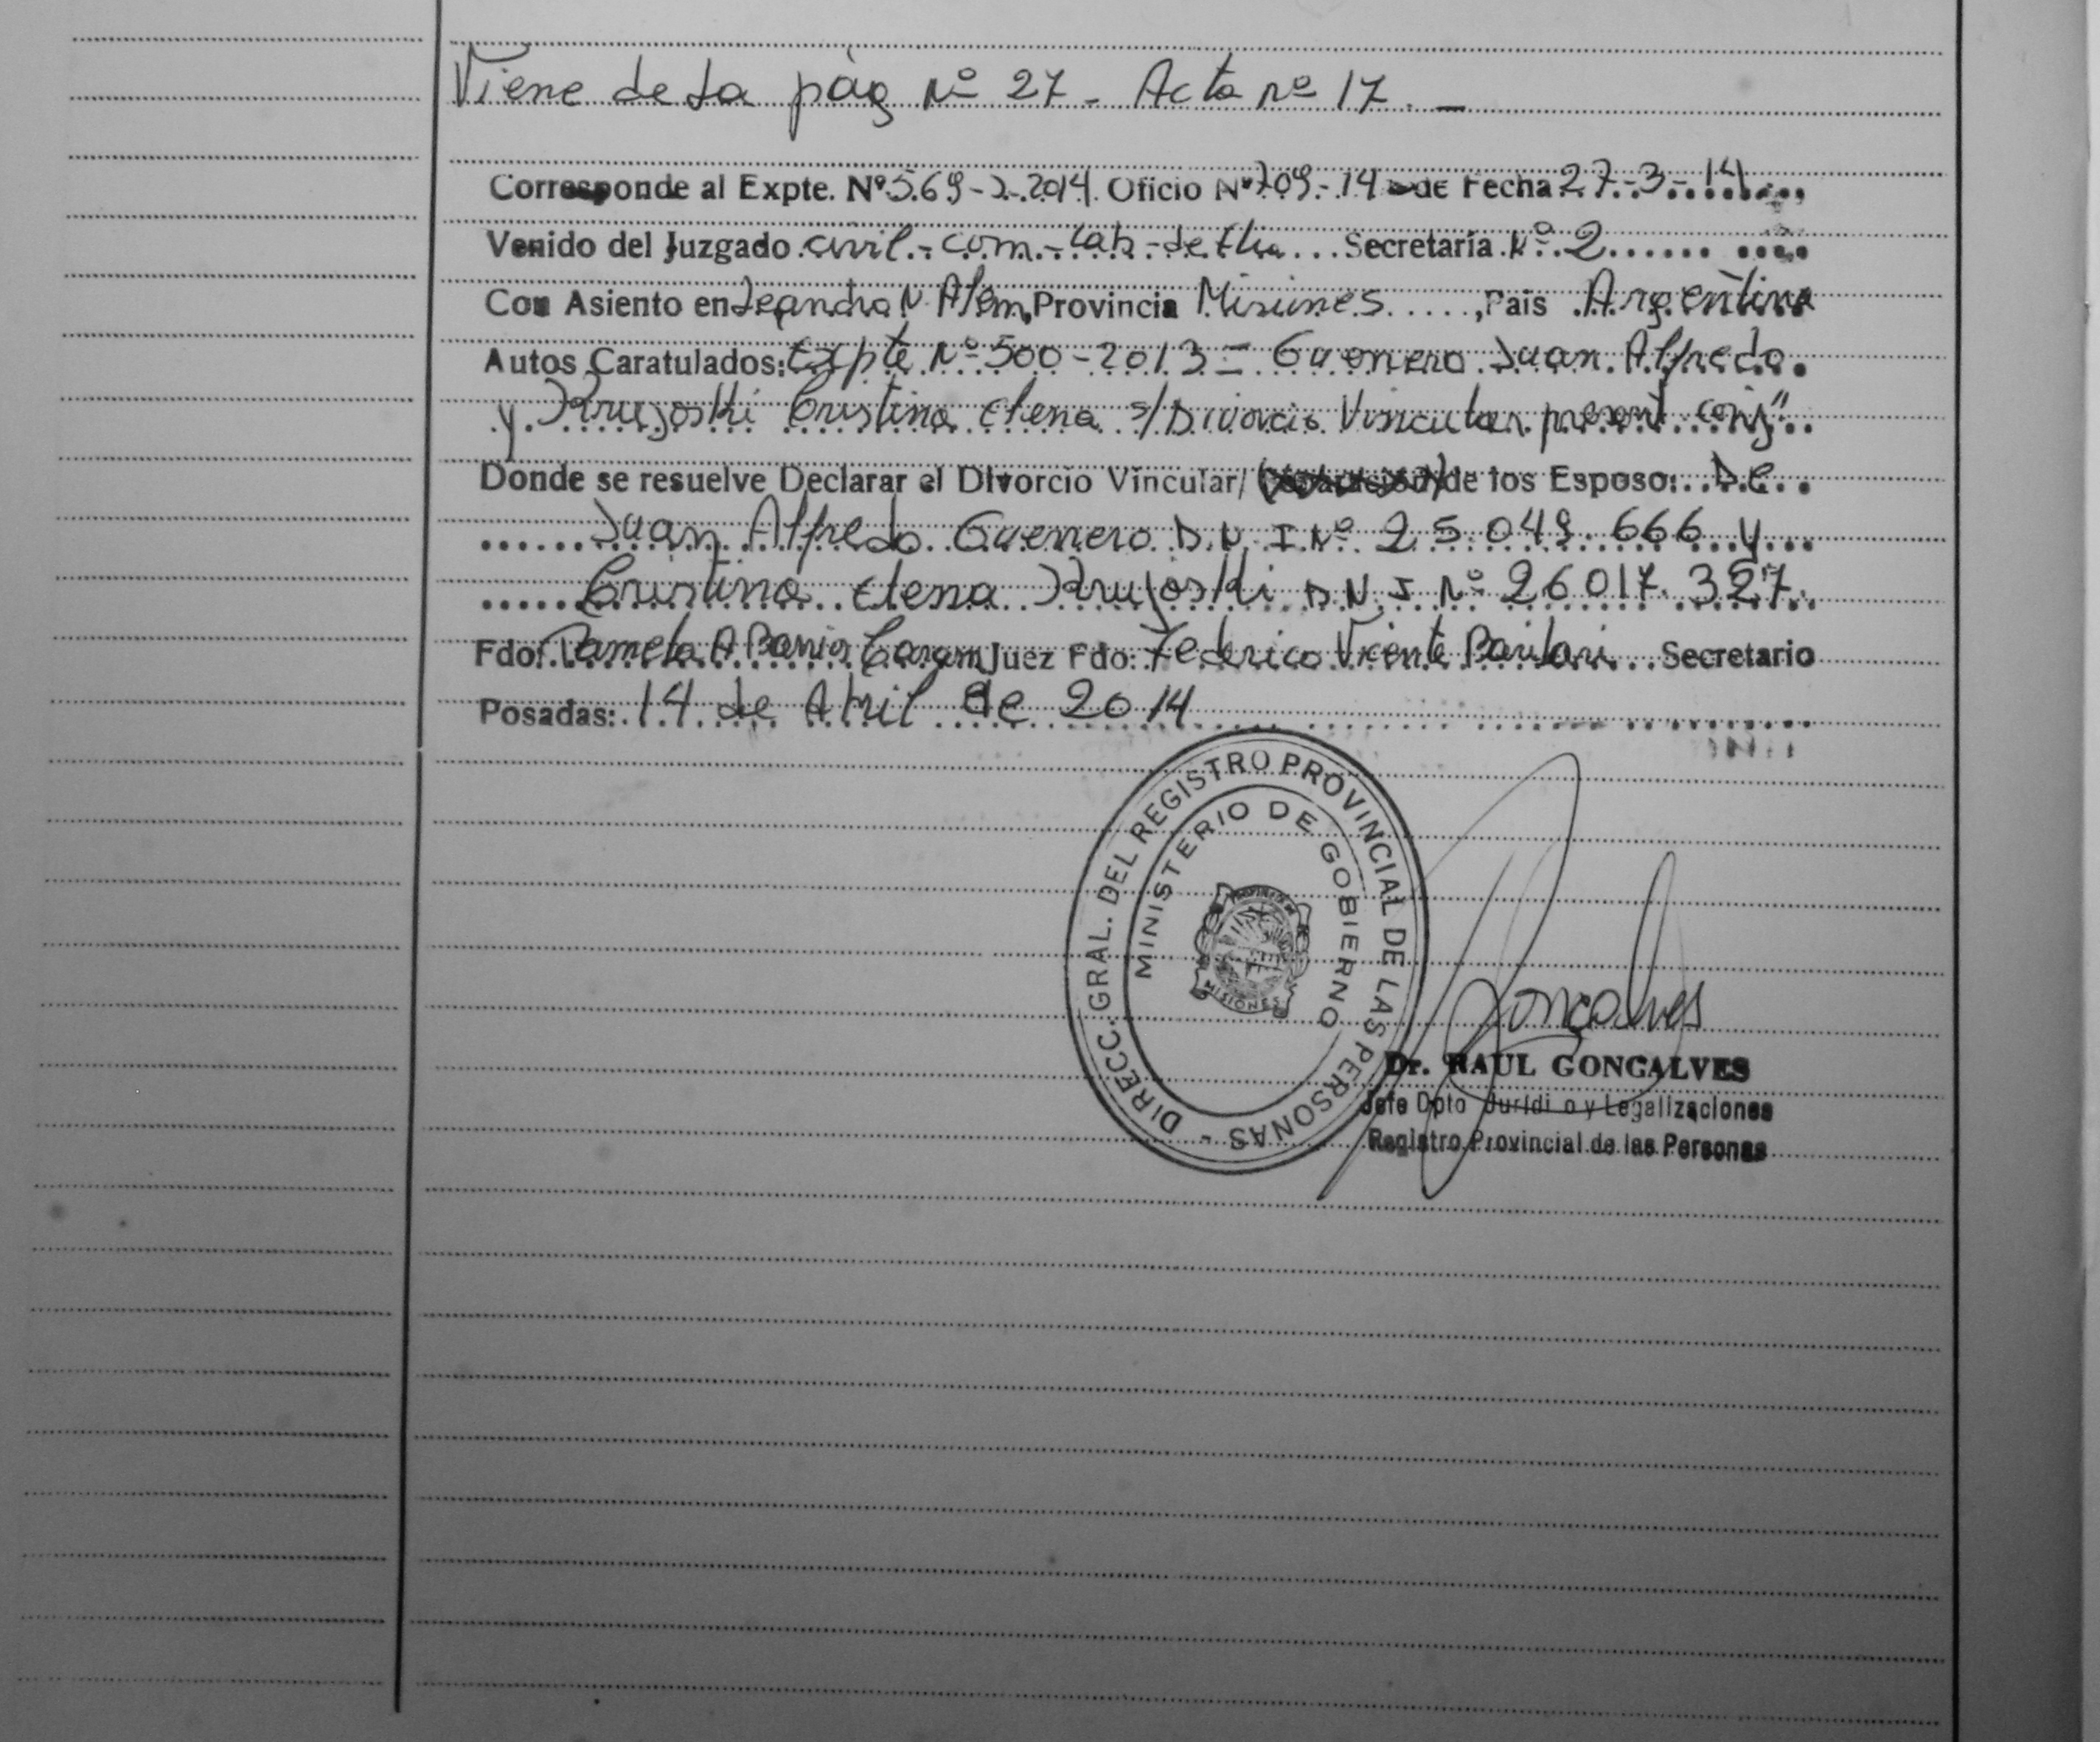 Viene de la pág Nº 27 - Acta nº 17. -
Corresponde al Expte. Nº 569-2-2014. Oficio Nº 709-14 de Fecha 27-3-14
Venido del Juzgado civil - com. - lab - de flia... Secretaría Nº 2
Con Asiento en Leandro N Alem, Provincia Misiones....., País Argentina
Autos Caratulados: Expte Nº 500-2013 - Guerrero Juan Alfredo
y Krujoski Cristina Elena s/Divorcio Vincular present conj"
Donde se resuelve Declarar el Divorcio Vincular/ de los Esposo: De
Juan Alfredo Guerrero D.N.I Nº 25.049.666 y
Cristina Elena Krujoski D.N.I. Nº 26.017.327.
Fdo: Pamela A Barrios Juez Fdo: Federico Vicente Secretario
Posadas: 14 de Abril de 2014
DIRECC. GRAL. DEL REGISTRO PROVINCIAL DE LAS PERSONAS -
MINISTERIO DE GOBIERNO
MISIONES
Goncalves
Dr. RAUL GONCALVES
Jefe Dpto Jurídi o y Legalizaciones
Registro Provincial de las Personas